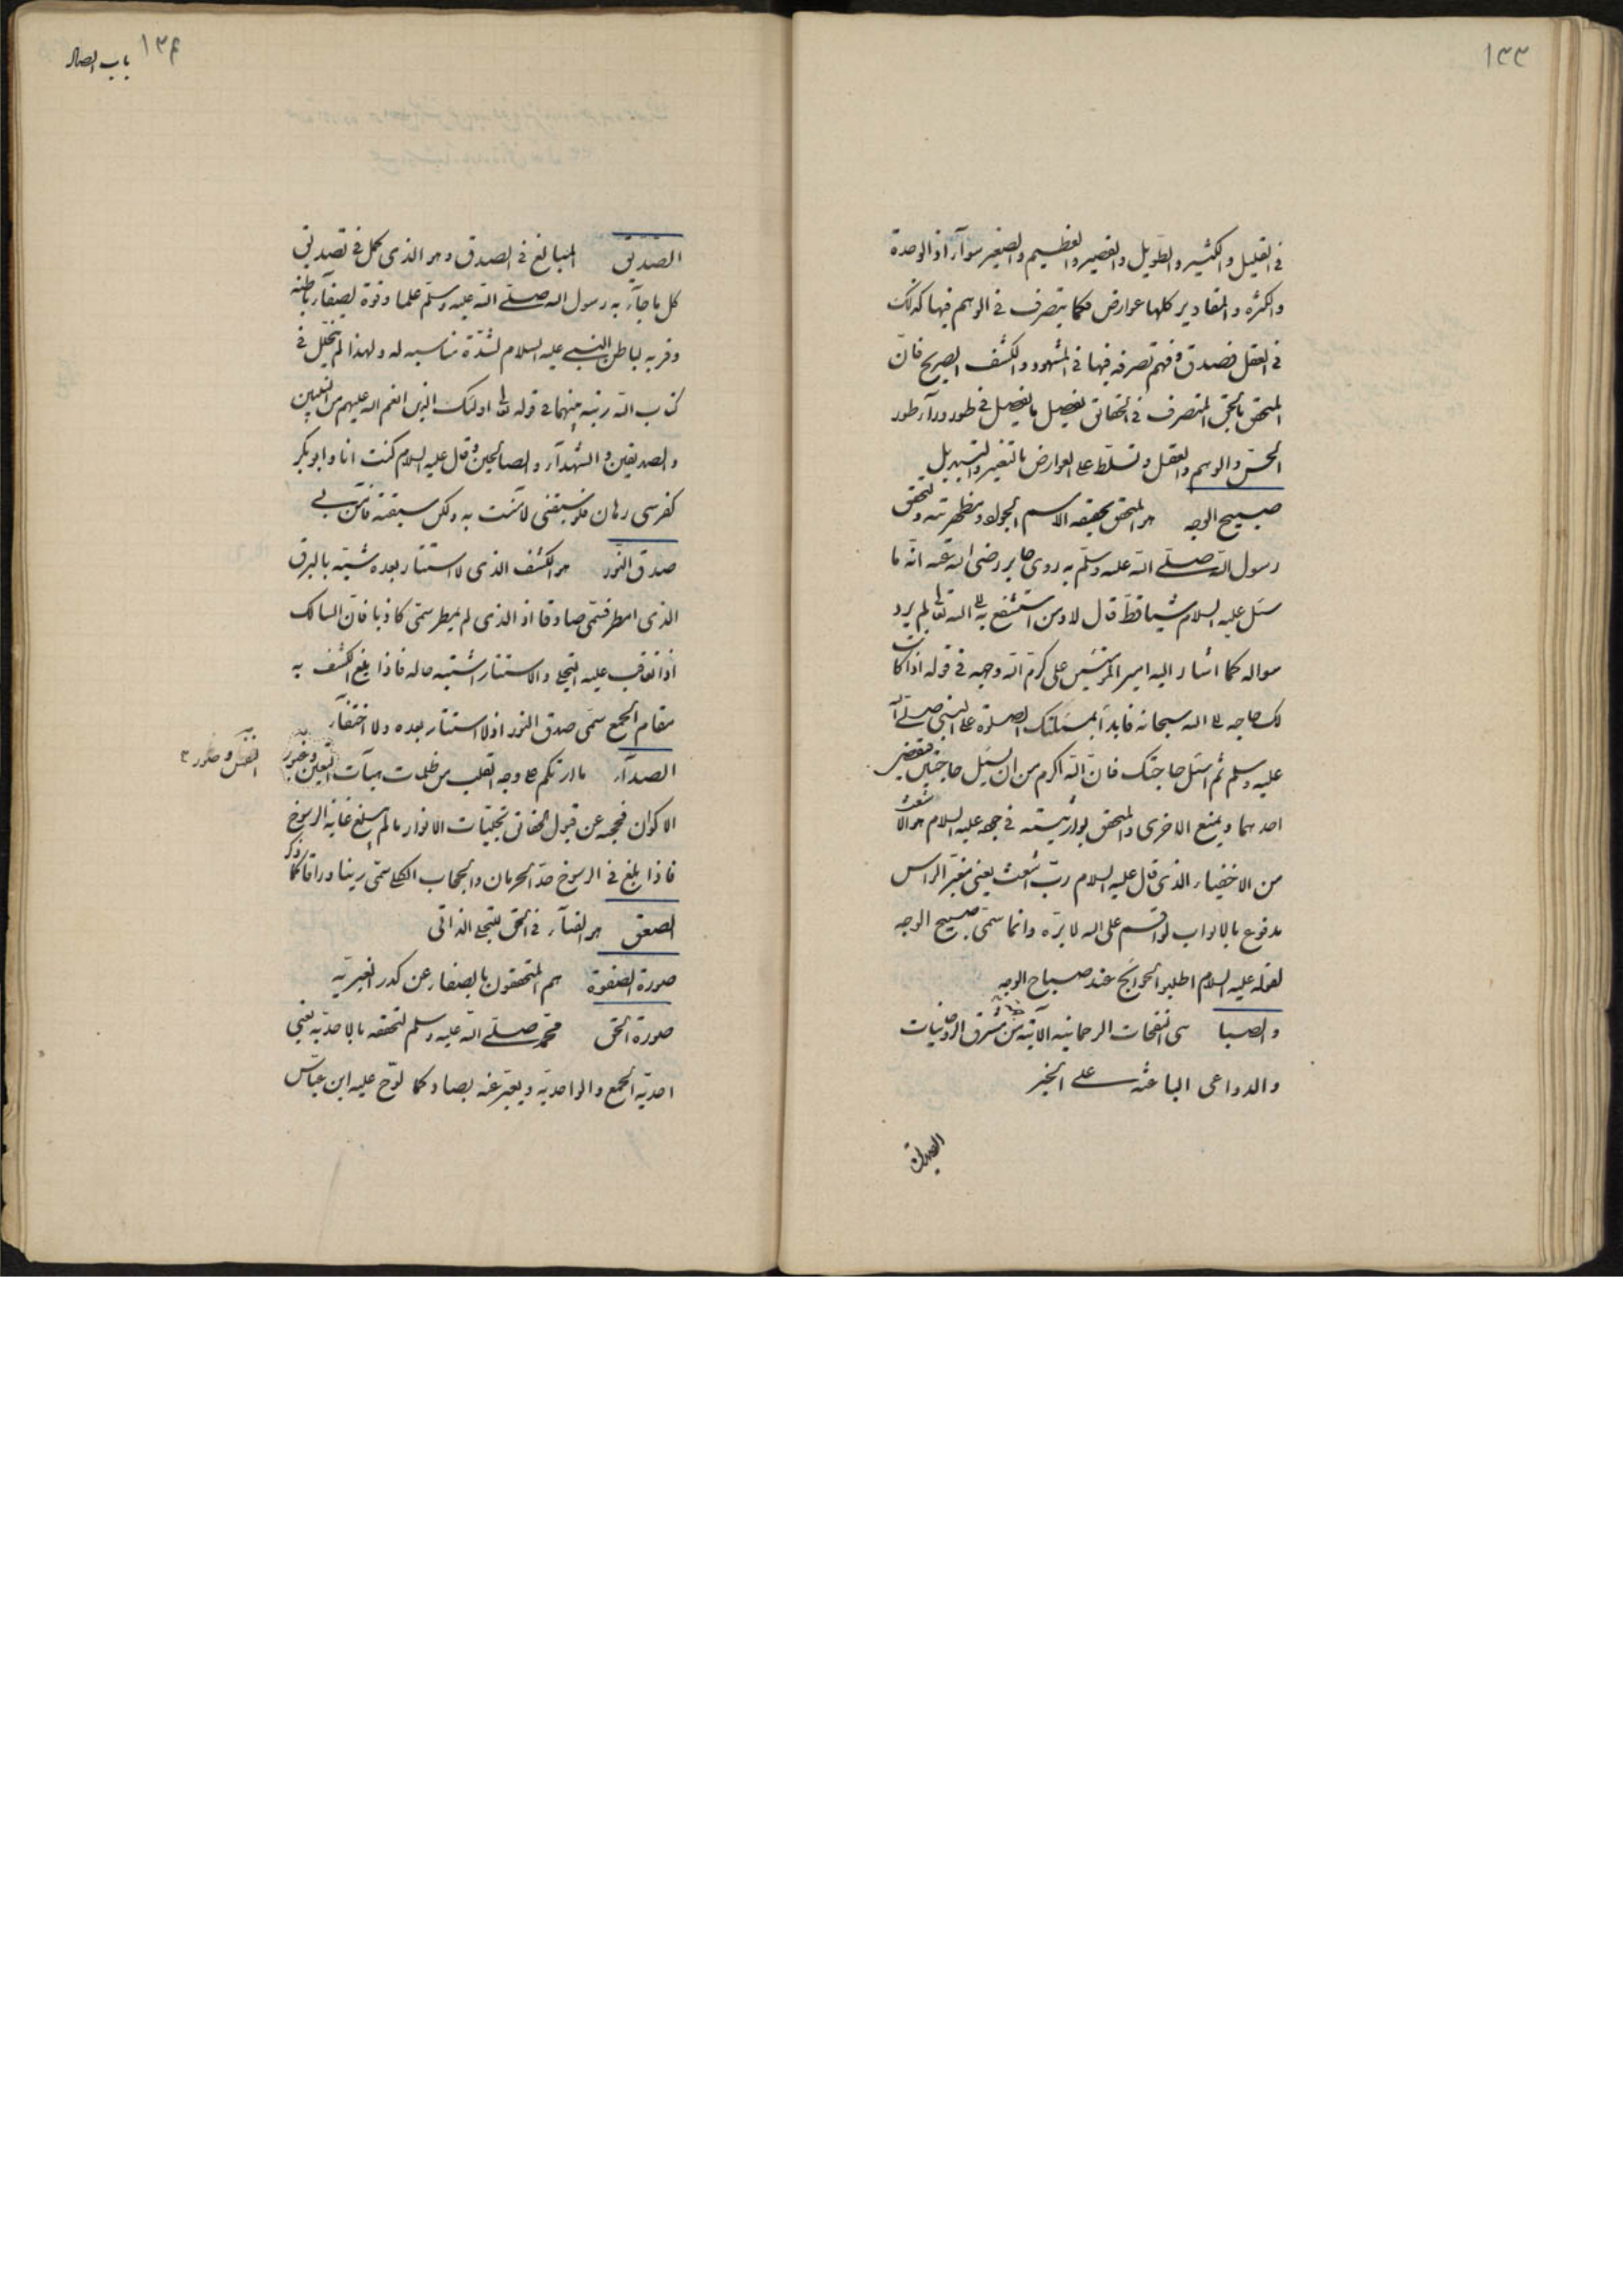 ١٣٣
فی القلیل والکثیر والطویل والقصیر والعظیم والصغیر سوآء اذ الوحدة
والکثره والمقادیر کلها عوارض فکما یتصرف فی الوهم فیها کذلک
فی العقل فصدق وفهم تصرفه فیها فی الشهود والکشف الصریح فانّ
المتحقق بالحق المتصرف فی الحقائق یفعل ما یفعل فی طور ورآء طور
الحسّ والوهم والعقل وتسلّط علی العوارض بالتغییر والتبدیل
صبیح الوجه هو المتحقق بحقیقه الاسم الجواد ومظهریته ولتحقق
رسول الله صلی الله علیه وسلّم به روی جابر رضی الله عنه انّه ما
سئل علیه السلام شیئا قطّ قال لا ومن استشفع به الی الله تعالی لم یرد
سواله کما اشار الیه امیر المؤمنین علی کرّم الله وجهه فی قوله اذا کانت
لک حاجه الی الله سبحانه فابدأ بمسئلتک الصلوة علی النبی صلی الله
علیه وسلم ثم اسئل حاجتک فانّ الله اکرم من ان یسئل حاجتین فیقضی
احدیهما ویمنع الاخری والمتحقق بوارثیته فی جوده علیه السلام هو الاشعث
من الاخفیاء الذی قال علیه السلام ربّ اشعث یعنی مغبّر الراس
مدفوع بالابواب لو اقسم علی الله لابرّه وانما سمّی صبیح الوجه
لقوله علیه السلام اطلبوا الحوائج عند صباح الوجوه
والصبا هی النفحات الرحمانیه الآتیة من مشرق الروحانیات
والدواعی الباعثه علی الخیر
الصدیق
١٣۴ باب الصاد
الصدیق المبالغ فی الصدق وهو الذی کمل فی تصدیق
کل ما جآء به رسول الله صلی الله علیه وسلّم علما وقوة لصفآء باطنه
وقربه لباطن النبی علیه السلام لشدّة مناسبه له ولهذا لم یتخلّل فی
کتاب الله رتبة بینهما فی قوله تعالی اولئک الذین انعم الله علیهم من النبیین
والصدیقین والشهدآء والصالحین وقال علیه السلام کنت انا وابو بکر
کفرسی رهان فلو سبقنی لآمنت به ولکن سبقته فآمن بی
صدق النّور هو الکشف الذی لا استتار بعده شبّه بالبرق
الذی امطر فسمّی صادقا اذ الذی لم یمطر سمّی کاذبا فانّ السالک
اذا تعاقب علیه التجلی والاستتار اشتبه حاله فاذا بلغ الکشف به
مقام الجمع سمّی صدق النور اذ لا استتار بعده ولا اختفآء
الصدآء ما ارتکم علی وجه القلب من ظلمات هیآت النفس وصور
الاکوان فحجبه عن قبول الحقائق وتجلیات الانوار ما لم یبلغ غایة الرسوخ
فاذا بلغ فی الرسوخ حدّ الحرمان والحجاب الکلی سمّی رینا وراقا کما ذکر
الصعق هو الفنآء فی الحق للتجلی الذاتی
صورة الصفوة هم المتحققون بالصفاء عن کدر الغیریّه
صورة الحق محمّد صلی الله علیه وسلم لتحققه بالاحدیّه یعنی
احدیّة الجمع والواحدیّه ویعبّر عنه بصاد کما لوّح علیه ابن عبّاس